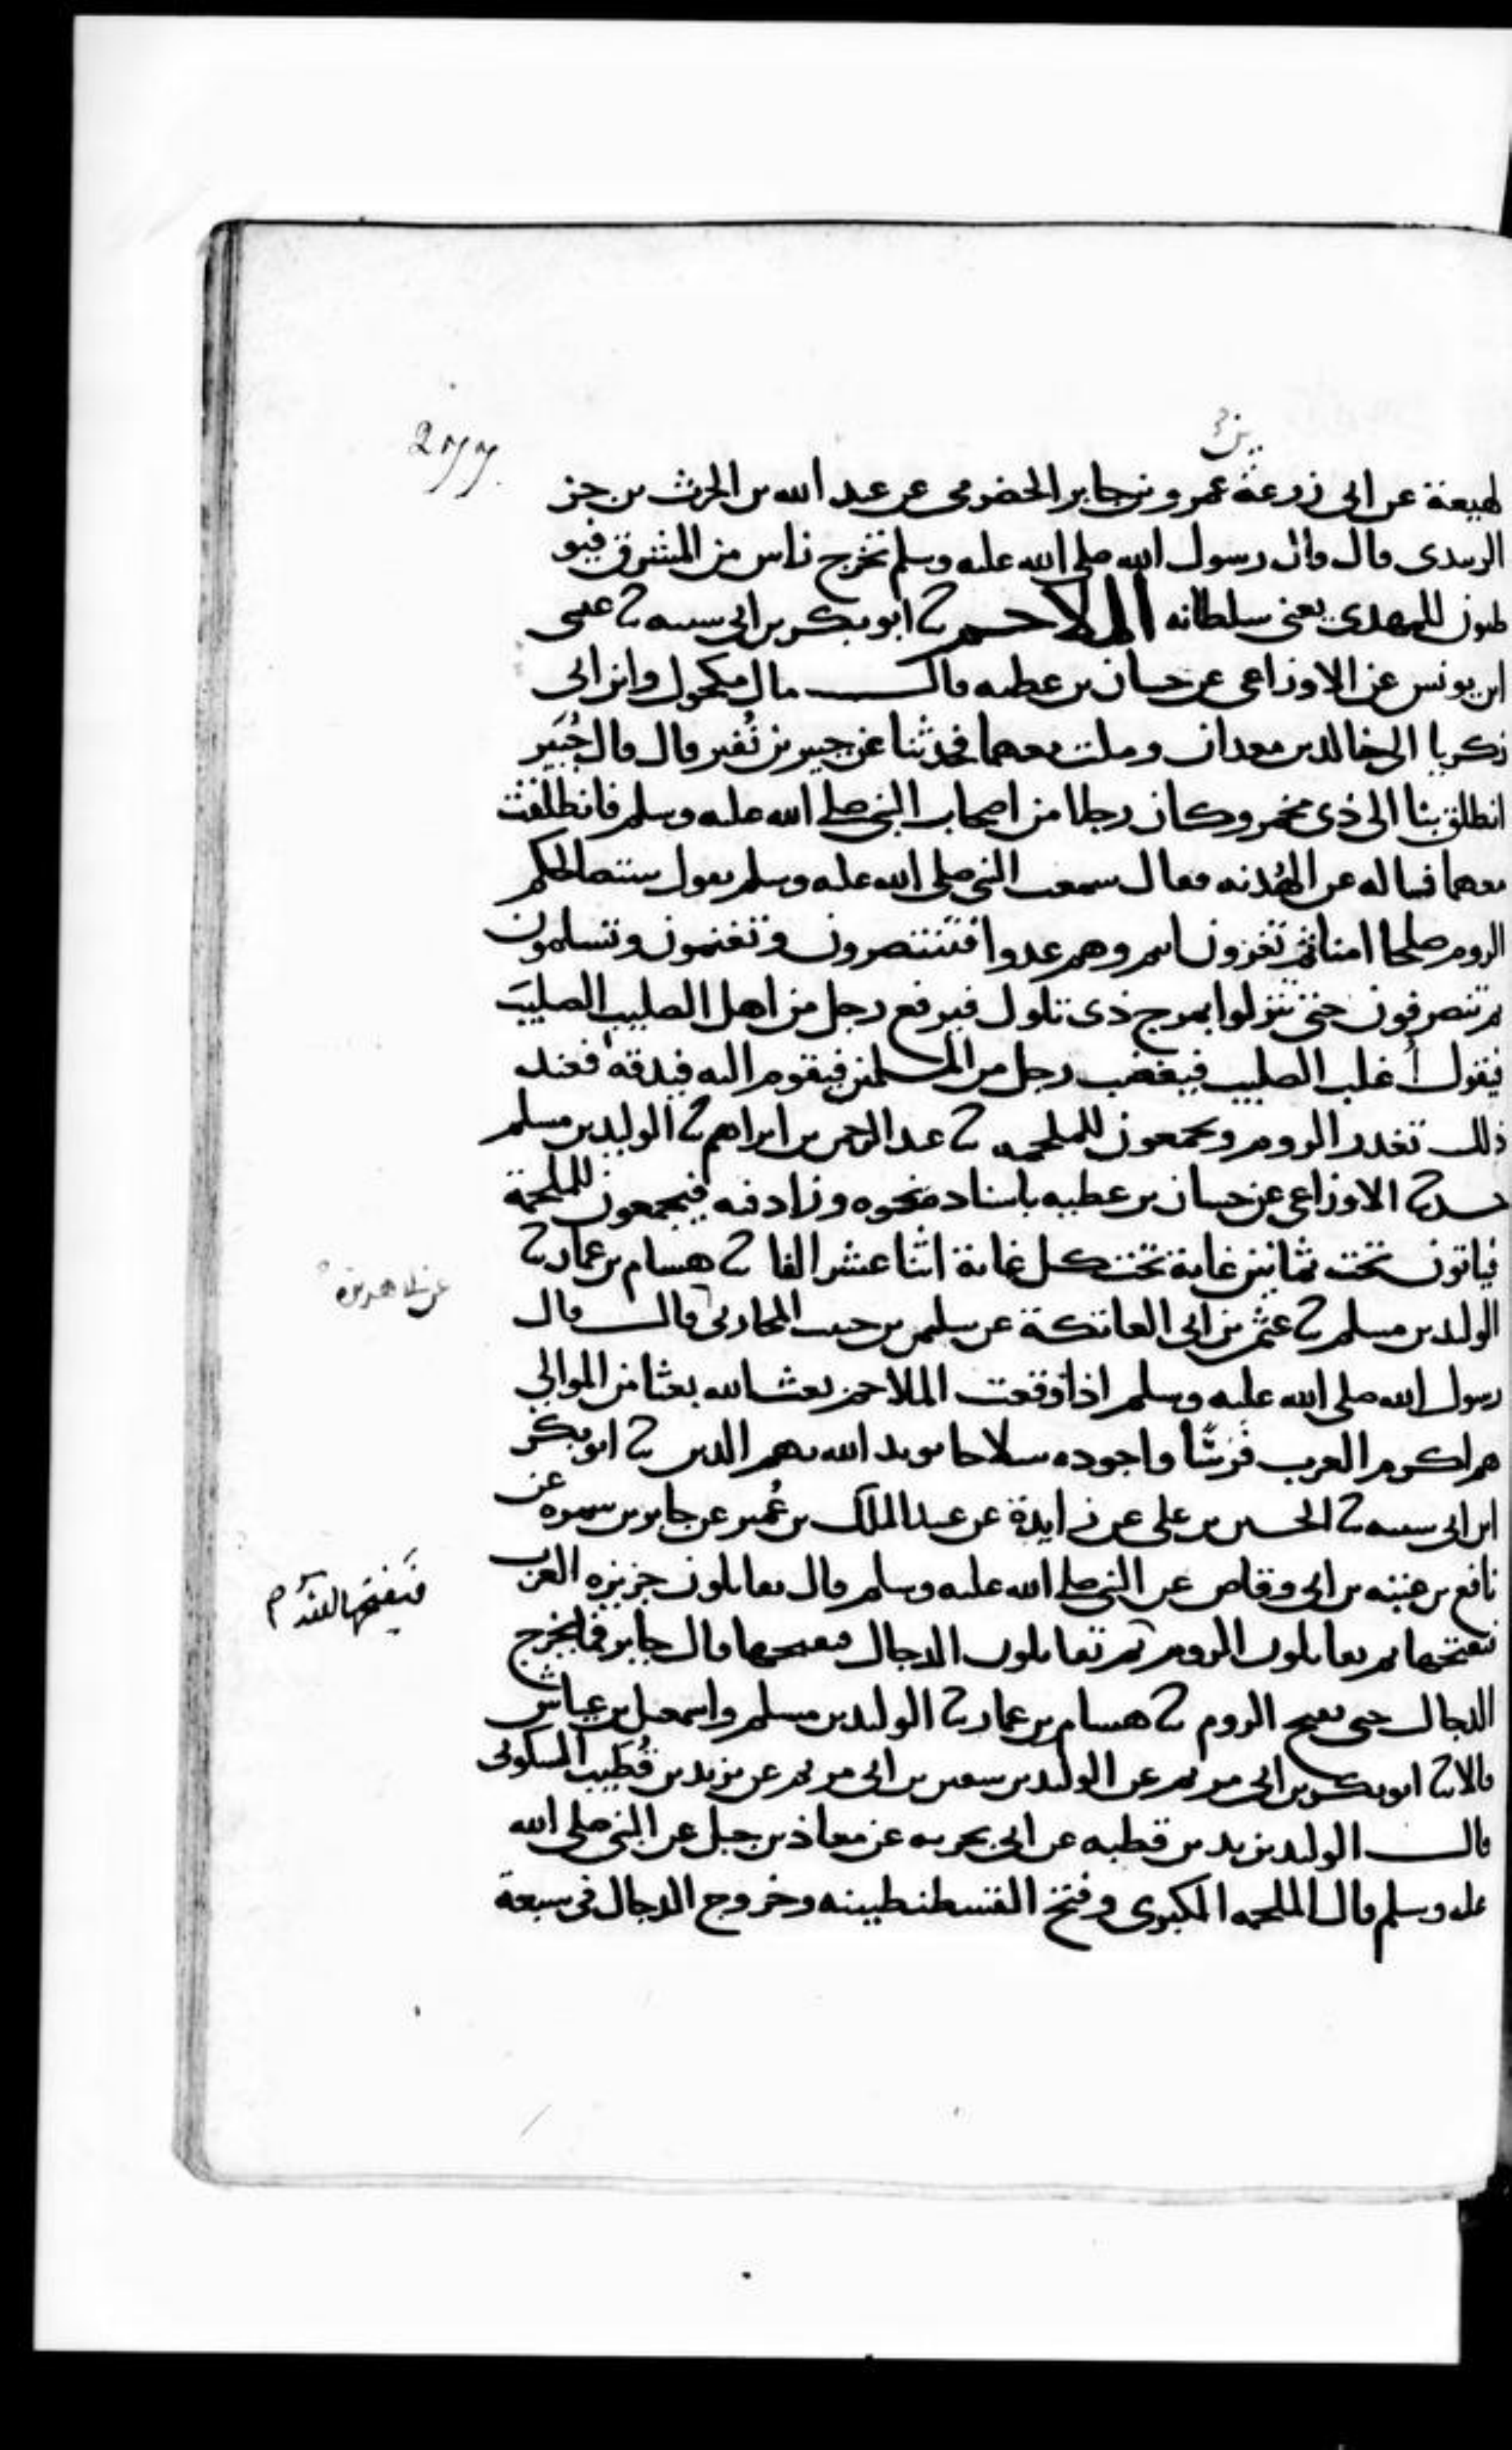 لهيعة عن ابى زرعة عمرو بن جابر الحضرمى عن عبد الله بن الحرث بن جز
الزبيدى قال قال رسول الله صلى الله عليه وسلم تخرج ناس من المشرق فيو
طون للمهدى يعنى سلطانه الملاحم ثنا ابو بكر بن ابى شيبه ثنا عيسى
ابن يونس عن الاوزاعى عن حسان بن عطيه قال مال مكحول وابن ابى
زكريا الى خالد بن معدان وملت معهما فحدثنا عن جبير بن نُفير قال قال جُبَير
انطلق بنا الى ذى مخمر وكان رجلا من اصحاب النبى صلى الله عليه وسلم فانطلقت
معهما فساله عن الهُدنه فقال سمعت النبى صلى الله عليه وسلم يقول ستصالحكم
الروم صلحا امنا ثم تغزون انتم وهم عدوا فتنتصرون وتغنمون وتسلمون
ثم تنصرفون حتى تنزلوا بمرج ذى تلول فيرفع رجل من اهل الصليب الصليبَ
فيقول غلب الصليب فيغضب رجل من المسلمين فيقوم اليه فيدقه فعند
ذلك تغدر الروم ويجمعون للملحمه ثنا عبد الرحمن بن ابراهيم ثنا الوليد بن مسلم
ثنا الاوزاعى عن حسان بن عطيه باسناده نحوه وزاد فيه فيجمعون للملحمة
فياتون تحت ثمانين غاية تحت كل غاية اثنا عشر الفا ثنا هشام بن عمار ثنا
الوليد بن مسلم ثنا عثمن بن ابى العاتكة عن سليمن بن حبيب المحاربى قال قال
عن ابى هريره
رسول الله صلى الله عليه وسلم اذا وقعت الملاحم بعث الله بعثا من الموالي
هم اكرم العرب فَرسًا واجوده سلاحا يويد الله بهم الدين ثنا ابو بكر
ابن ابى شيبه ثنا الحسين بن على عن زايدة عن عبد الملك بن عُمير عن جابر بن سمره عن
نافع بن عتبه بن ابى وقاص عن النبى صلى الله عليه وسلم قال تقاتلون جزيره العرب
فيفتحها الله م
فيفتحها ثم تقاتلون الروم ثم تقاتلون الدجال فيفتحها قال جابر فما يخرج
الدجال حتى تفتح الروم ثنا هشام بن عمار ثنا الوليد بن مسلم واسمعيل بن عياش
قالا ثنا ابو بكر بن ابى مريم عن الوليد بن سفين بن ابى مريم عن يزيد بن قُطَيب السكونى
قال الوليد يزيد بن قطبه عن ابى بحريه عن معاذ بن جبل عن النبى صلى الله
عليه وسلم قال الملحمه الكبرى وفتح القسطنطينيه وخروج الدجال فى سبعة